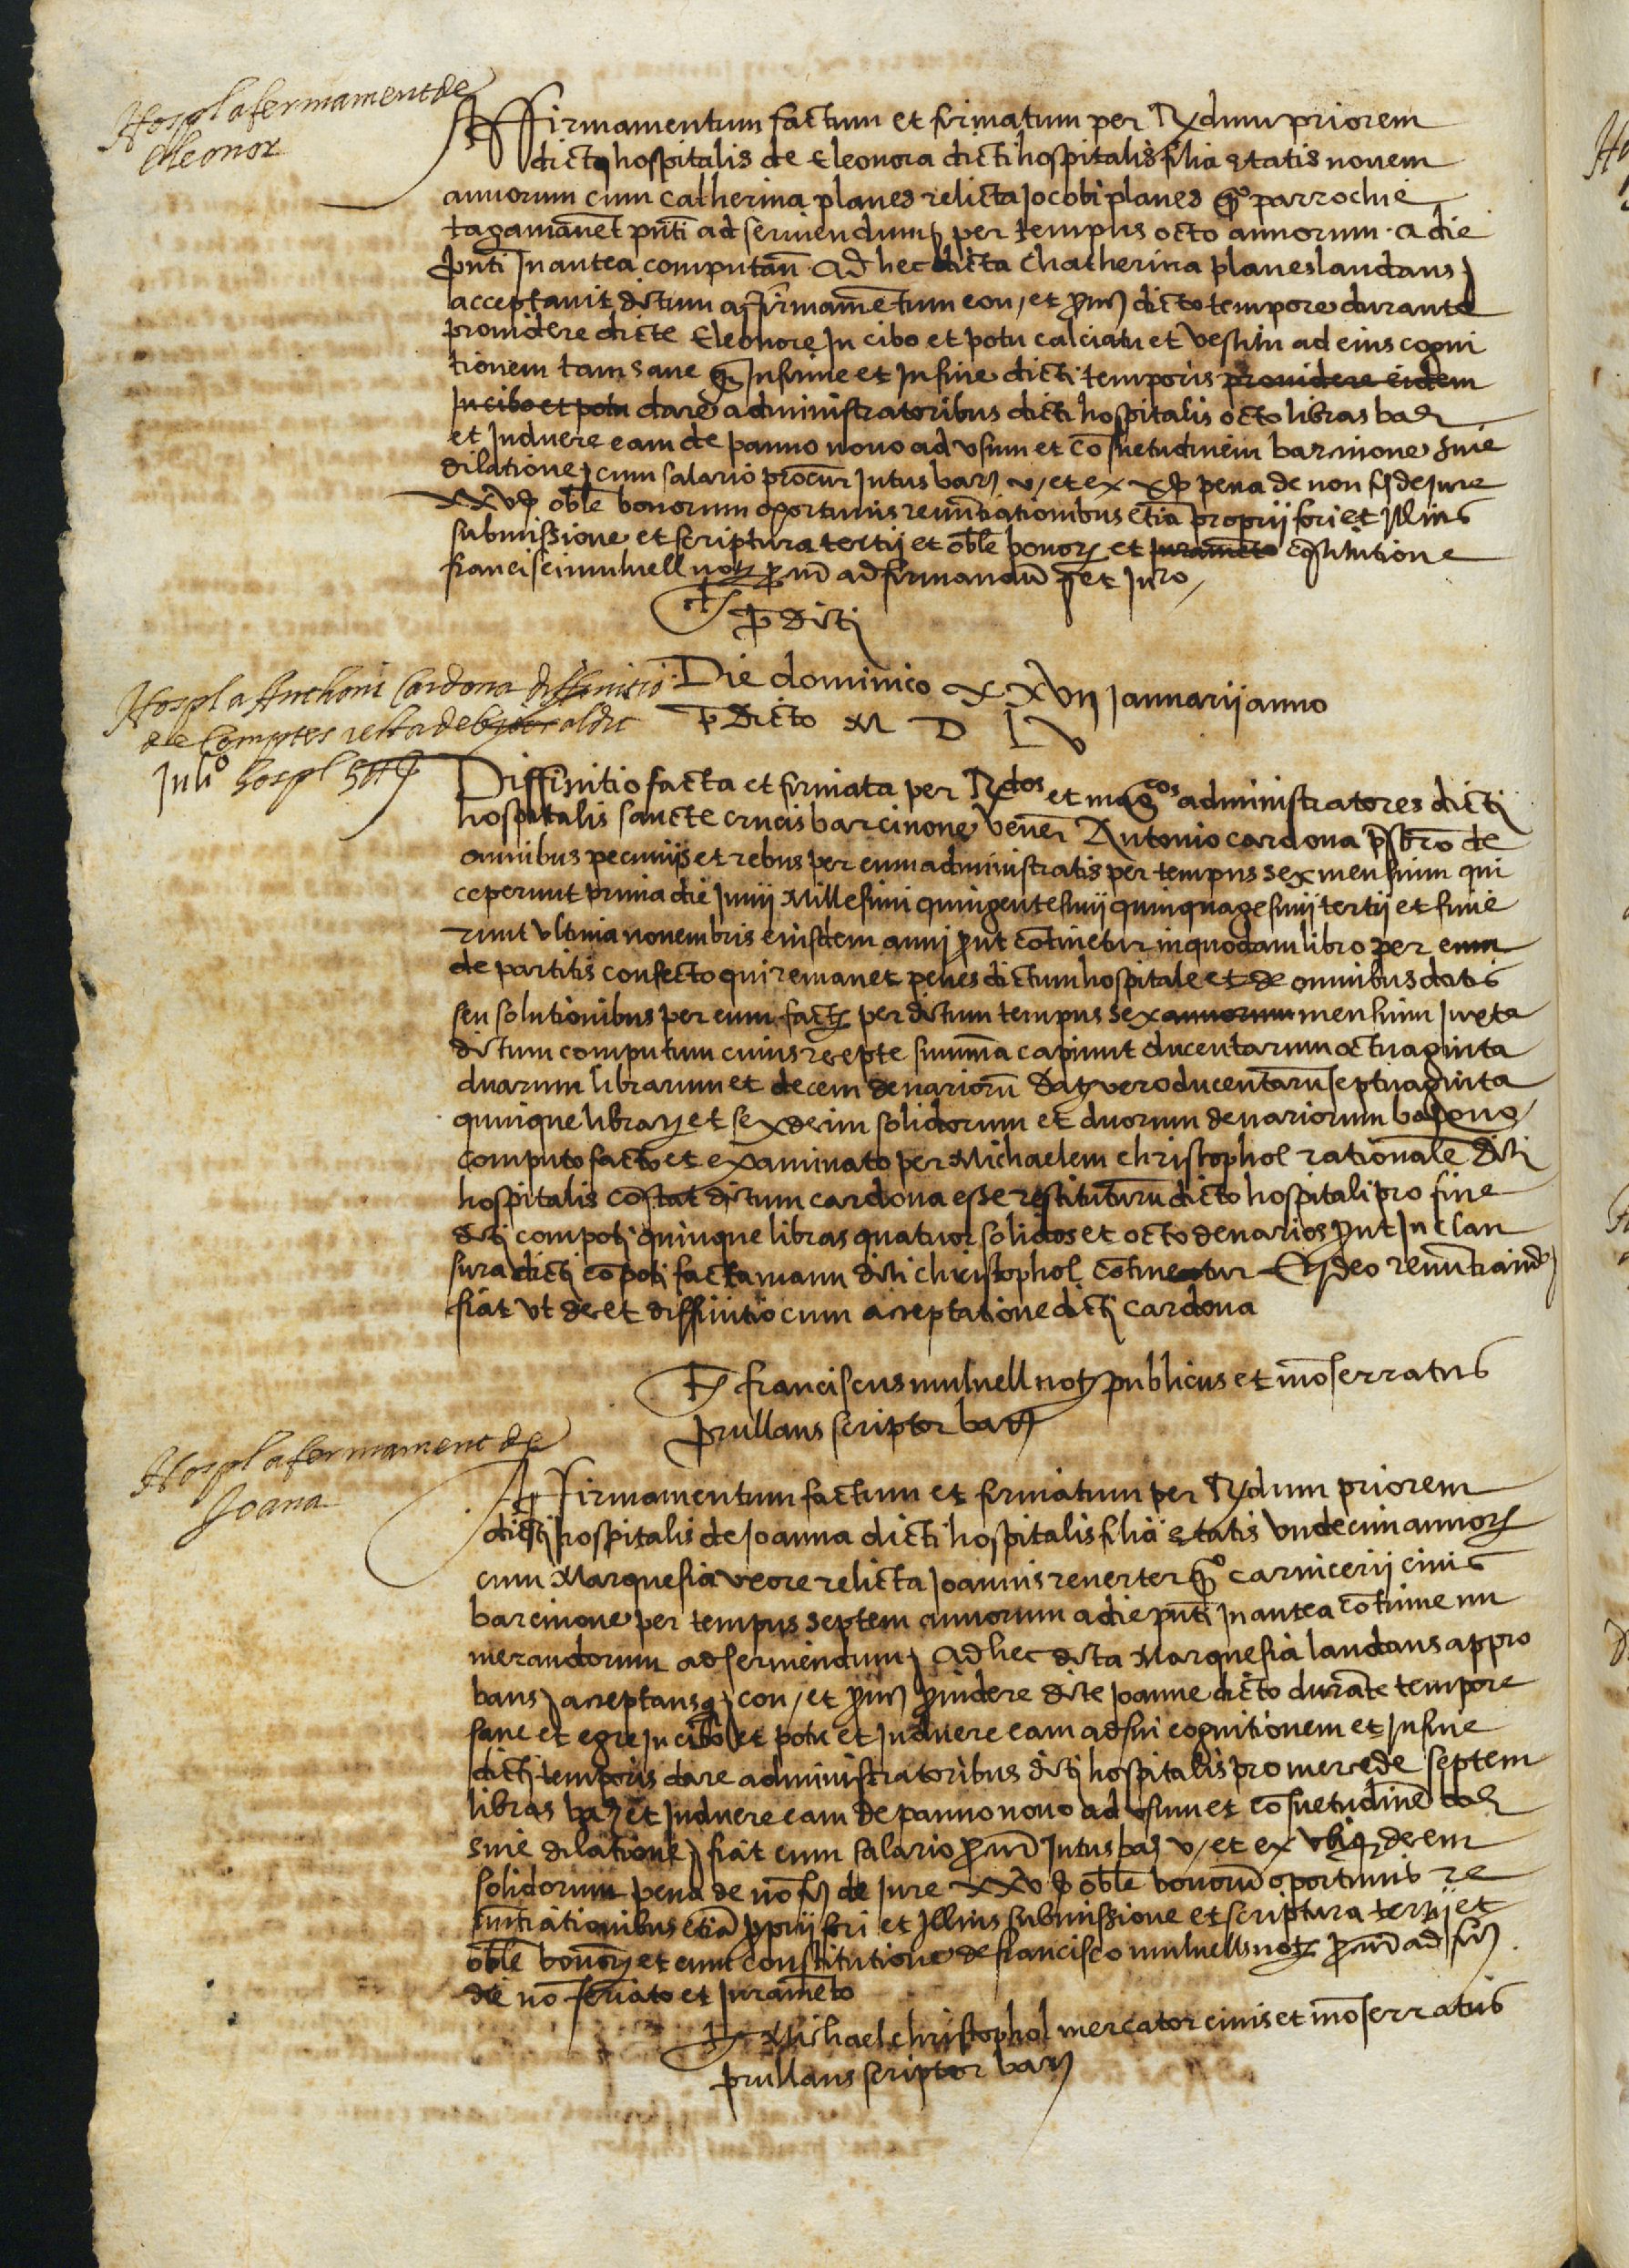 Hospl afermament de
Eleonor
Affirmamentum factum et firmatum per Rdum priorem
dicti hospitalis de Eleonora dicti hospitalis filia etatis novem
annorum cum Catherina planes relicta Jocobi planes qº parrochie
tagamanēt pūti ad serviendum per tempus octo annorum a die
pūti In antea computan̄ Ad hec dicta Chatherina planes laudans
acceptavit dictum affirmamētum con, et dicto tempore durante
providere dicte Eleonore In cibo et potu calciatu et vestitu ad eius cogni
tionem tam sane q̄ Infirme et In fine dicti temporis providere eidem
In cibo et potu dare administratoribus dicti hospitalis octo libras bar
et Induere eam de panno novo ad usum et cōsuetudinem barcinone sine
dilatione cum salario procur Intus bar v, et ex x pena de non de Jure
xxv obl̄e bonorum oportunis renūtiationibus etiā proprij fori et Illius
submissione et scriptura tertij et obl̄e bonor et Juramēto cōstitutione
francisci mulnell not ad firmandū et Juro
T
p dicti
Hospl a Anthoni Cardona diffinitio
de Comptes resta deb aldit
Julº hospl
Die dominico xxvij Januarij anno
p dicto M D L V
Diffinitio facta et firmata per Rdos et magcos administratores dicti
hospitalis sancte crucis barcinone vener Antonio cardona p̄sbrō de
omnibus pecunijs et rebus per eum administratis per tempus sex mensium qui
ceperunt prima die Junij Millesimi quingentesimij quinquagesimij tertij et finie
runt ultima novembris eiusdem annj put cōtinetur in quodam libro per eum
de partitis confecto qui remanet penes dictum hospitale et de omnibus datis
seu solutionibus per eum factis per dictum tempus sex annorum mensium Juxta
dictum computum cuius recepte summa capiunt ducentarum octuaginta
duarum librarum et decem denariorū Dat vero ducentarū septuaginta
quinque librar et sexdecim solidorum et duorum denariorum bar quo
computo facto et examinato per Michaelem christophol rationale dicti
hospitalis cōstat dictum cardona esse restituturū dicto hospitali pro fine
dictj compotj quinque libras quatuor solidos et octo denarios put In clau
sura dictj cōpotj facta manu dicti christophol cōtinetur Et Ideo renūtiando
fiat ut decet diffinitio cum acceptatione dictj cardona
T franciscus mulnell not publicus et mōserratus
prullans scriptor bar
Hospl afermament de
Joana
Affirmamentum factum et firmatum per Rdum priorem
dictj hospitalis de Joanna dicti hospitalis filia etatis undecim annor
cum Marquesia uxore relicta Joannis reverter qº carnicerij civis
barcinone per tempus septem annorum a die pūti In antea cōtinue nu
merandorum ad serviendum Ad hec dicta Marquesia laudans appro
bans acceptansq con, et pvidere dicte Joanne dicto durāte tempore
sane et egre In cibo et potu et Induere eam ad sui cognitionem et In fine
dictj temporis dare administratoribus dictj hospitalis pro mercede septem
libras bar et Induere eam de panno novo ad usum et cōsuetudinē bar
sine dilatione fiat cum salario Intus bar v, et ex decem
solidorum pena de nō de Jure xxv obl̄e bonorū oportunis re
nūtiationibus etiā pprij fori et Illius submissione et scriptura tertij et
obl̄e bonor et cum constitutione de francisco mulnell not ad
die nō feriato et Juramēto
T Michael christophol mercator civis et mōserratus
prullans scriptor bar